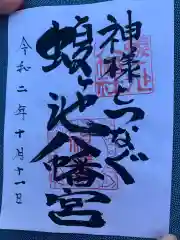 神様とつなぐ
蛾ヶ池八幡宮
令和二年十月十一日